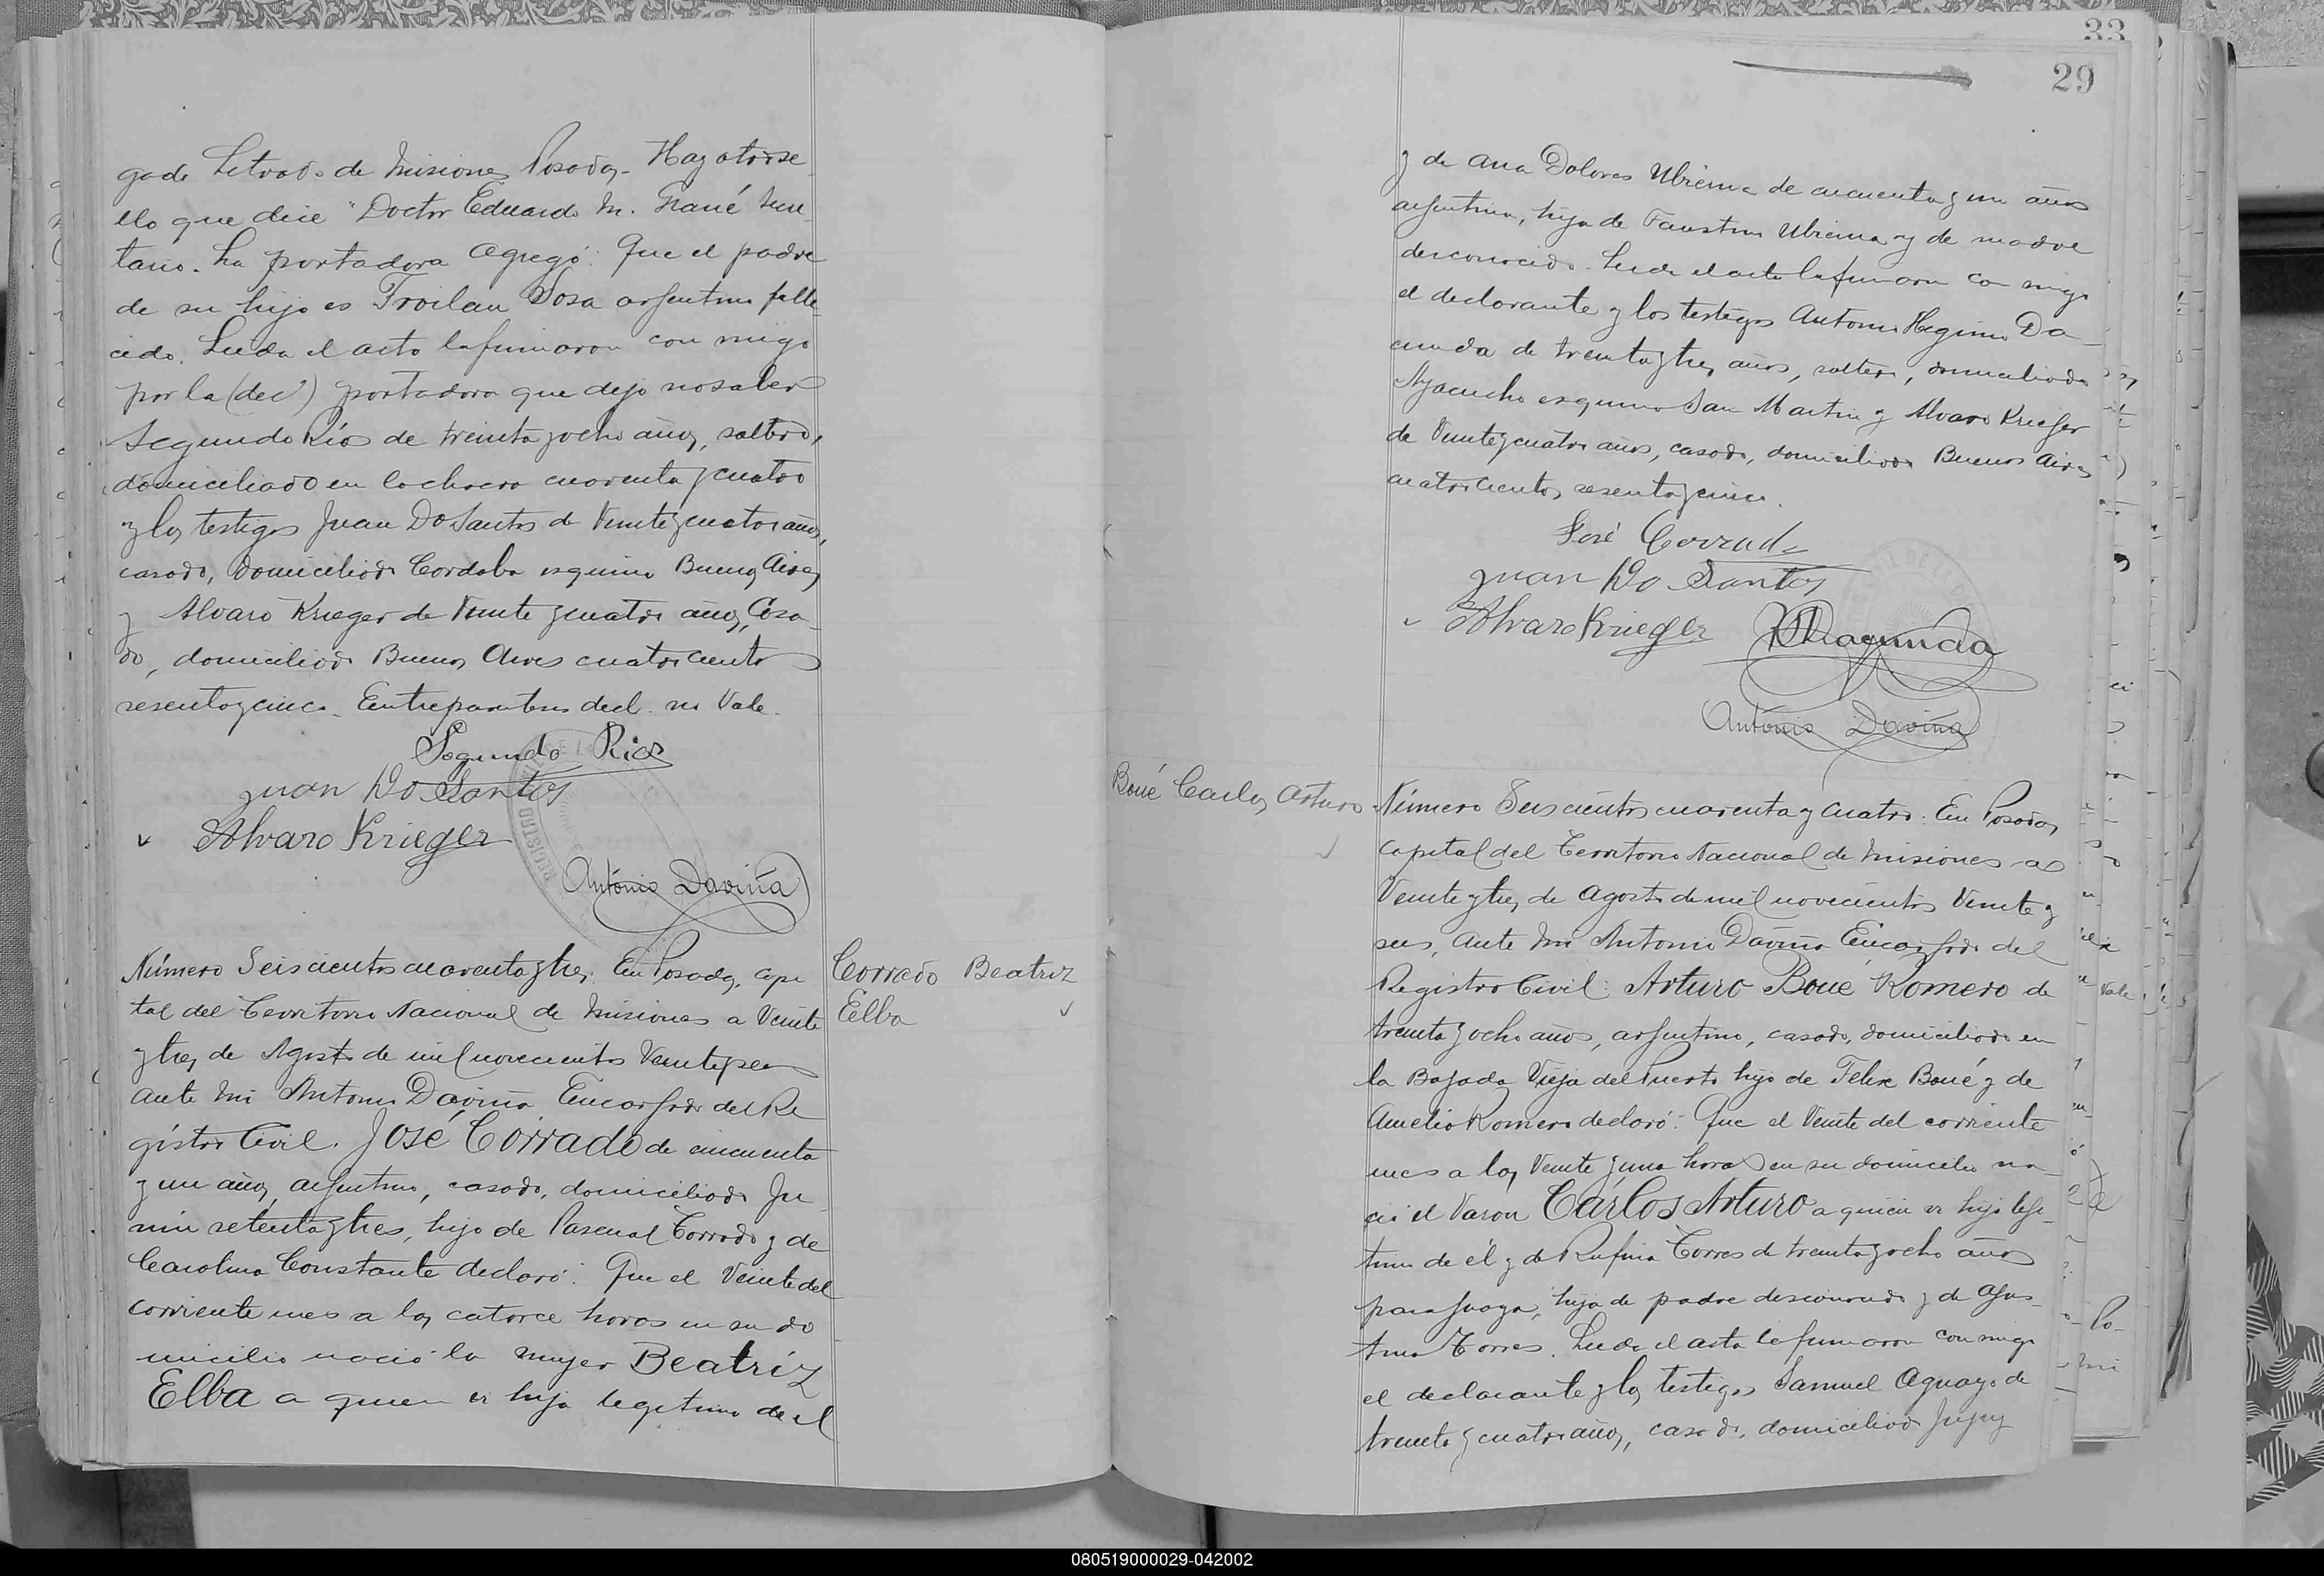 gado Letrado de Misiones Posadas. Hay otro se
llo que dice "Doctor Eduardo M.
tario. La portadora agregó: Que el padre
de su hijo es Troilan Sosa argentino falle
cido. Leida el acta la firmaron con migo
por la (decl) portadora que dijo no saber
Segundo Ríos de treinta y ocho años, soltero,
domiciliado en la chacra cuarenta y cuatro
y los testigos Juan Do Santos de Veinte y cuatro años,
casado, domiciliado Cordoba esquina Buenos Aires
y Alvaro Krieger de Veinte y cuatro años, Casa-
do, domiciliado Buenos Aires cuatrocientos
sesenta y cinco. Entreparentesis decl. no Vale.
Segundo Rios
Juan Do Santos
Alvaro Krieger
Antonio Daviña
REGISTRO
Número Seiscientos cuarenta y tres. En Posadas, capi
tal del Territorio Nacional de Misiones a Veinte
y tres de Agosto de mil novecientos Veinte y seis
ante mi Antonio Daviña Encargado del Re
gistro Civil. José Corrado de cincuenta
y un años, argentino, casado, domiciliado Ju
nin setenta y tres, hijo de Pascual Corrado y de
Carolina Constante declaró: Que el Veinte del
corriente mes a las catorce horas en su do
micilio nació la mujer Beatríz
Elba a quien es hija legitima de el
Corrado Beatriz
Elba
33
29
y de Ana Dolores Ubierna de cuarenta y un años
argentina, hija de Faustino Ubierna y de madre
desconocida. Leida el acta la firmaron con migo
el declarante y los testigos Antonio Higinio Da-
cunda de treinta y tres años, soltero, domiciliado
Ayacucho esquina San Martin y Alvaro Krieger
de Veinte y cuatro años, casado, domiciliado Buenos Aires
cuatrocientos sesenta y cinco.
José Corrado
Juan Do Santos
Alvaro Krieger
Antonio Daviña
Boué Carlos Arturo
Número Seiscientos cuarenta y cuatro. En Posadas,
capital del Territorio Nacional de Misiones a
Veinte y tres de Agosto de mil novecientos Veinte y
seis, ante mi Antonio Daviña Encargado del
Registro Civil: Arturo Boue Romero de
treinta y ocho años, argentino, casado, domiciliado en
la Bajada Vieja del Puerto hijo de Felix Boué y de
Amelia Romero declaró: Que el Veinte del corriente
mes a las Veinte y una horas en su domicilio na-
ció el Varón Cárlos Arturo a quien es hijo legi-
timo de él y de Rufina Torres de treinta y ocho años
paraguaya, hija de padre desconocido y de Agus-
tina Torres. Leida el acta la firmaron con migo
el declarante y los testigos Samuel Aguayo de
treinta y cuatro años, casado, domiciliado Jujuy
080519000029-042002